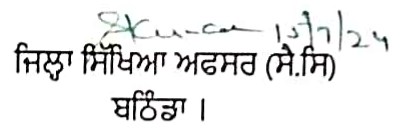 15/7/24
ਜਿਲ੍ਹਾ ਸਿੱਖਿਆ ਅਫਸਰ (ਸੈ.ਸਿ)
ਬਠਿੰਡਾ ।